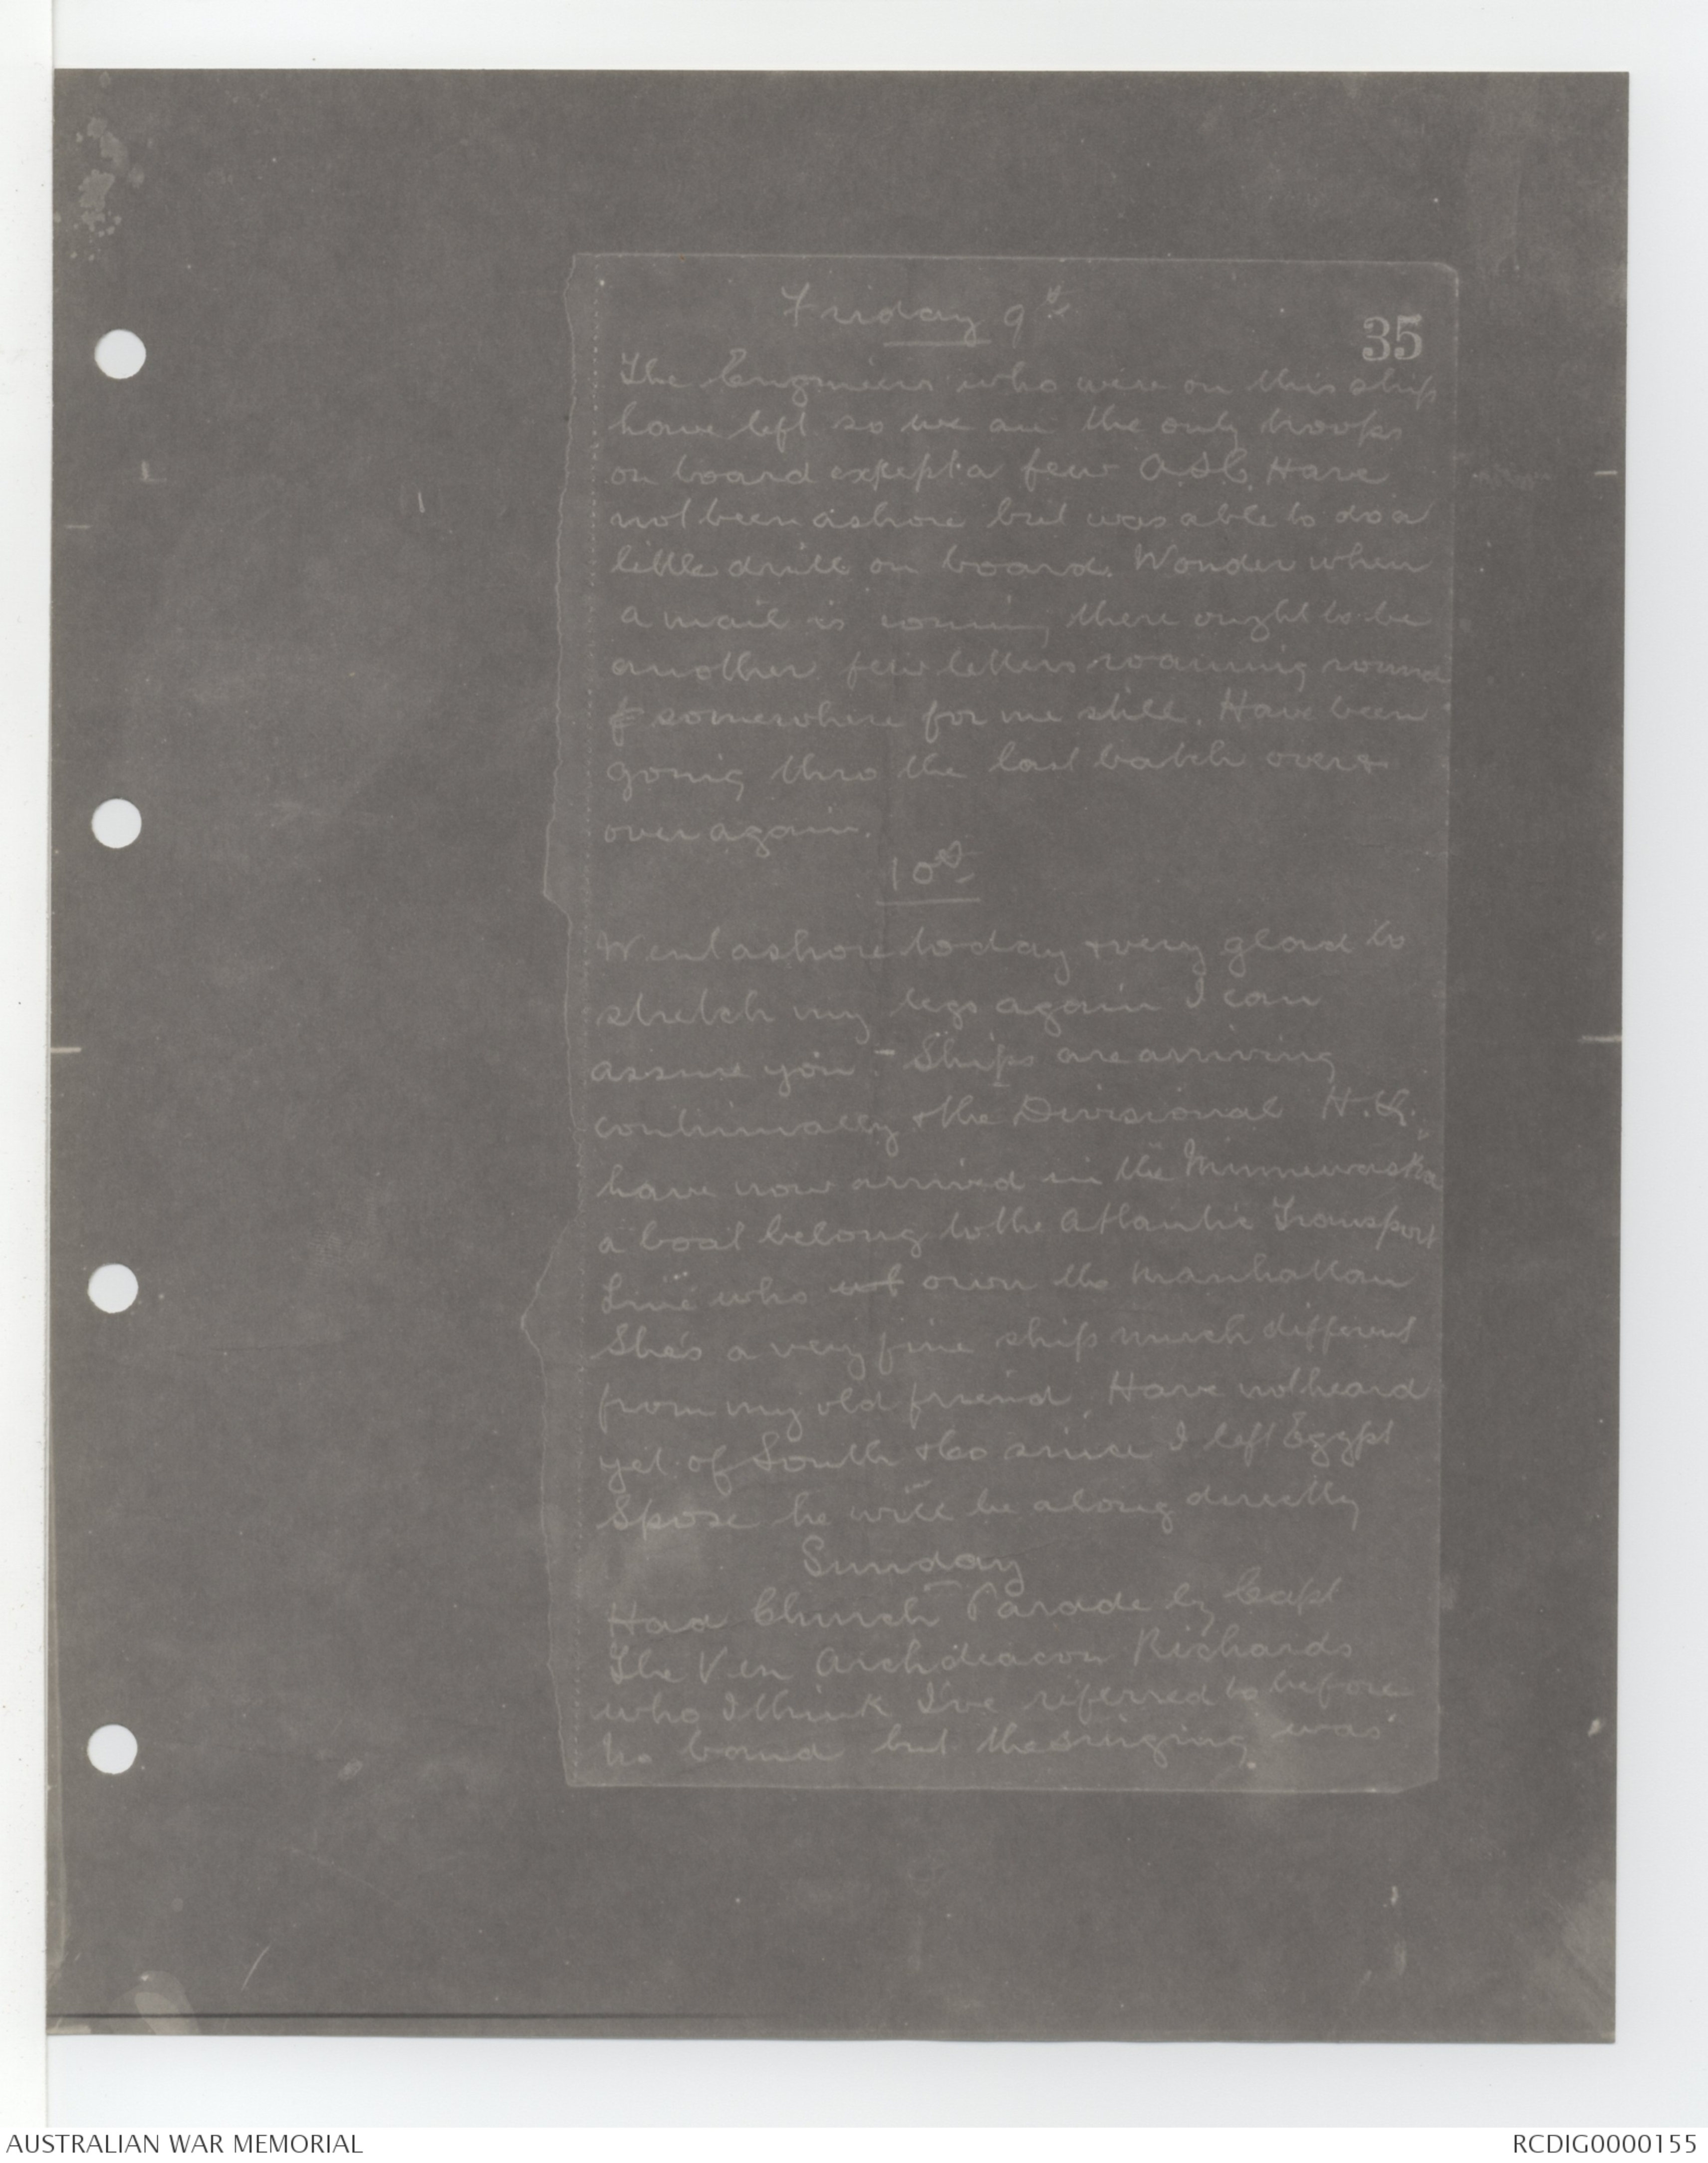 Friday 9th
35
The Engineers who were on this ship
have left so we are the only troops
on board except a few A.S.C. Have
not been ashore but was able to do a
little drill on board. Wonder when
a mail is coming there ought to be
another few letters roaming round
somewhere for me still. Have been
going thro the last batch over &
over again.
10th
Went ashore today & very glad to
stretch my legs again I can
assure you - Ships are arriving
continually & the Divisional H.Q.
have now arrived in the "Minnewaska"
a boat belong to the Atlantic Transport
Line who own the Manhattan
She's a very fine ship much different
from my old friend. Have not heard
yet of South & Co since I left Egypt
Spose he will be along directly
Sunday
Had Church Parade by Capt
The Ven Archdeacon Richards
who I think I've referred to before
No band but the singing was
AUSTRALIAN WAR MEMORIAL
RCDIG0000155